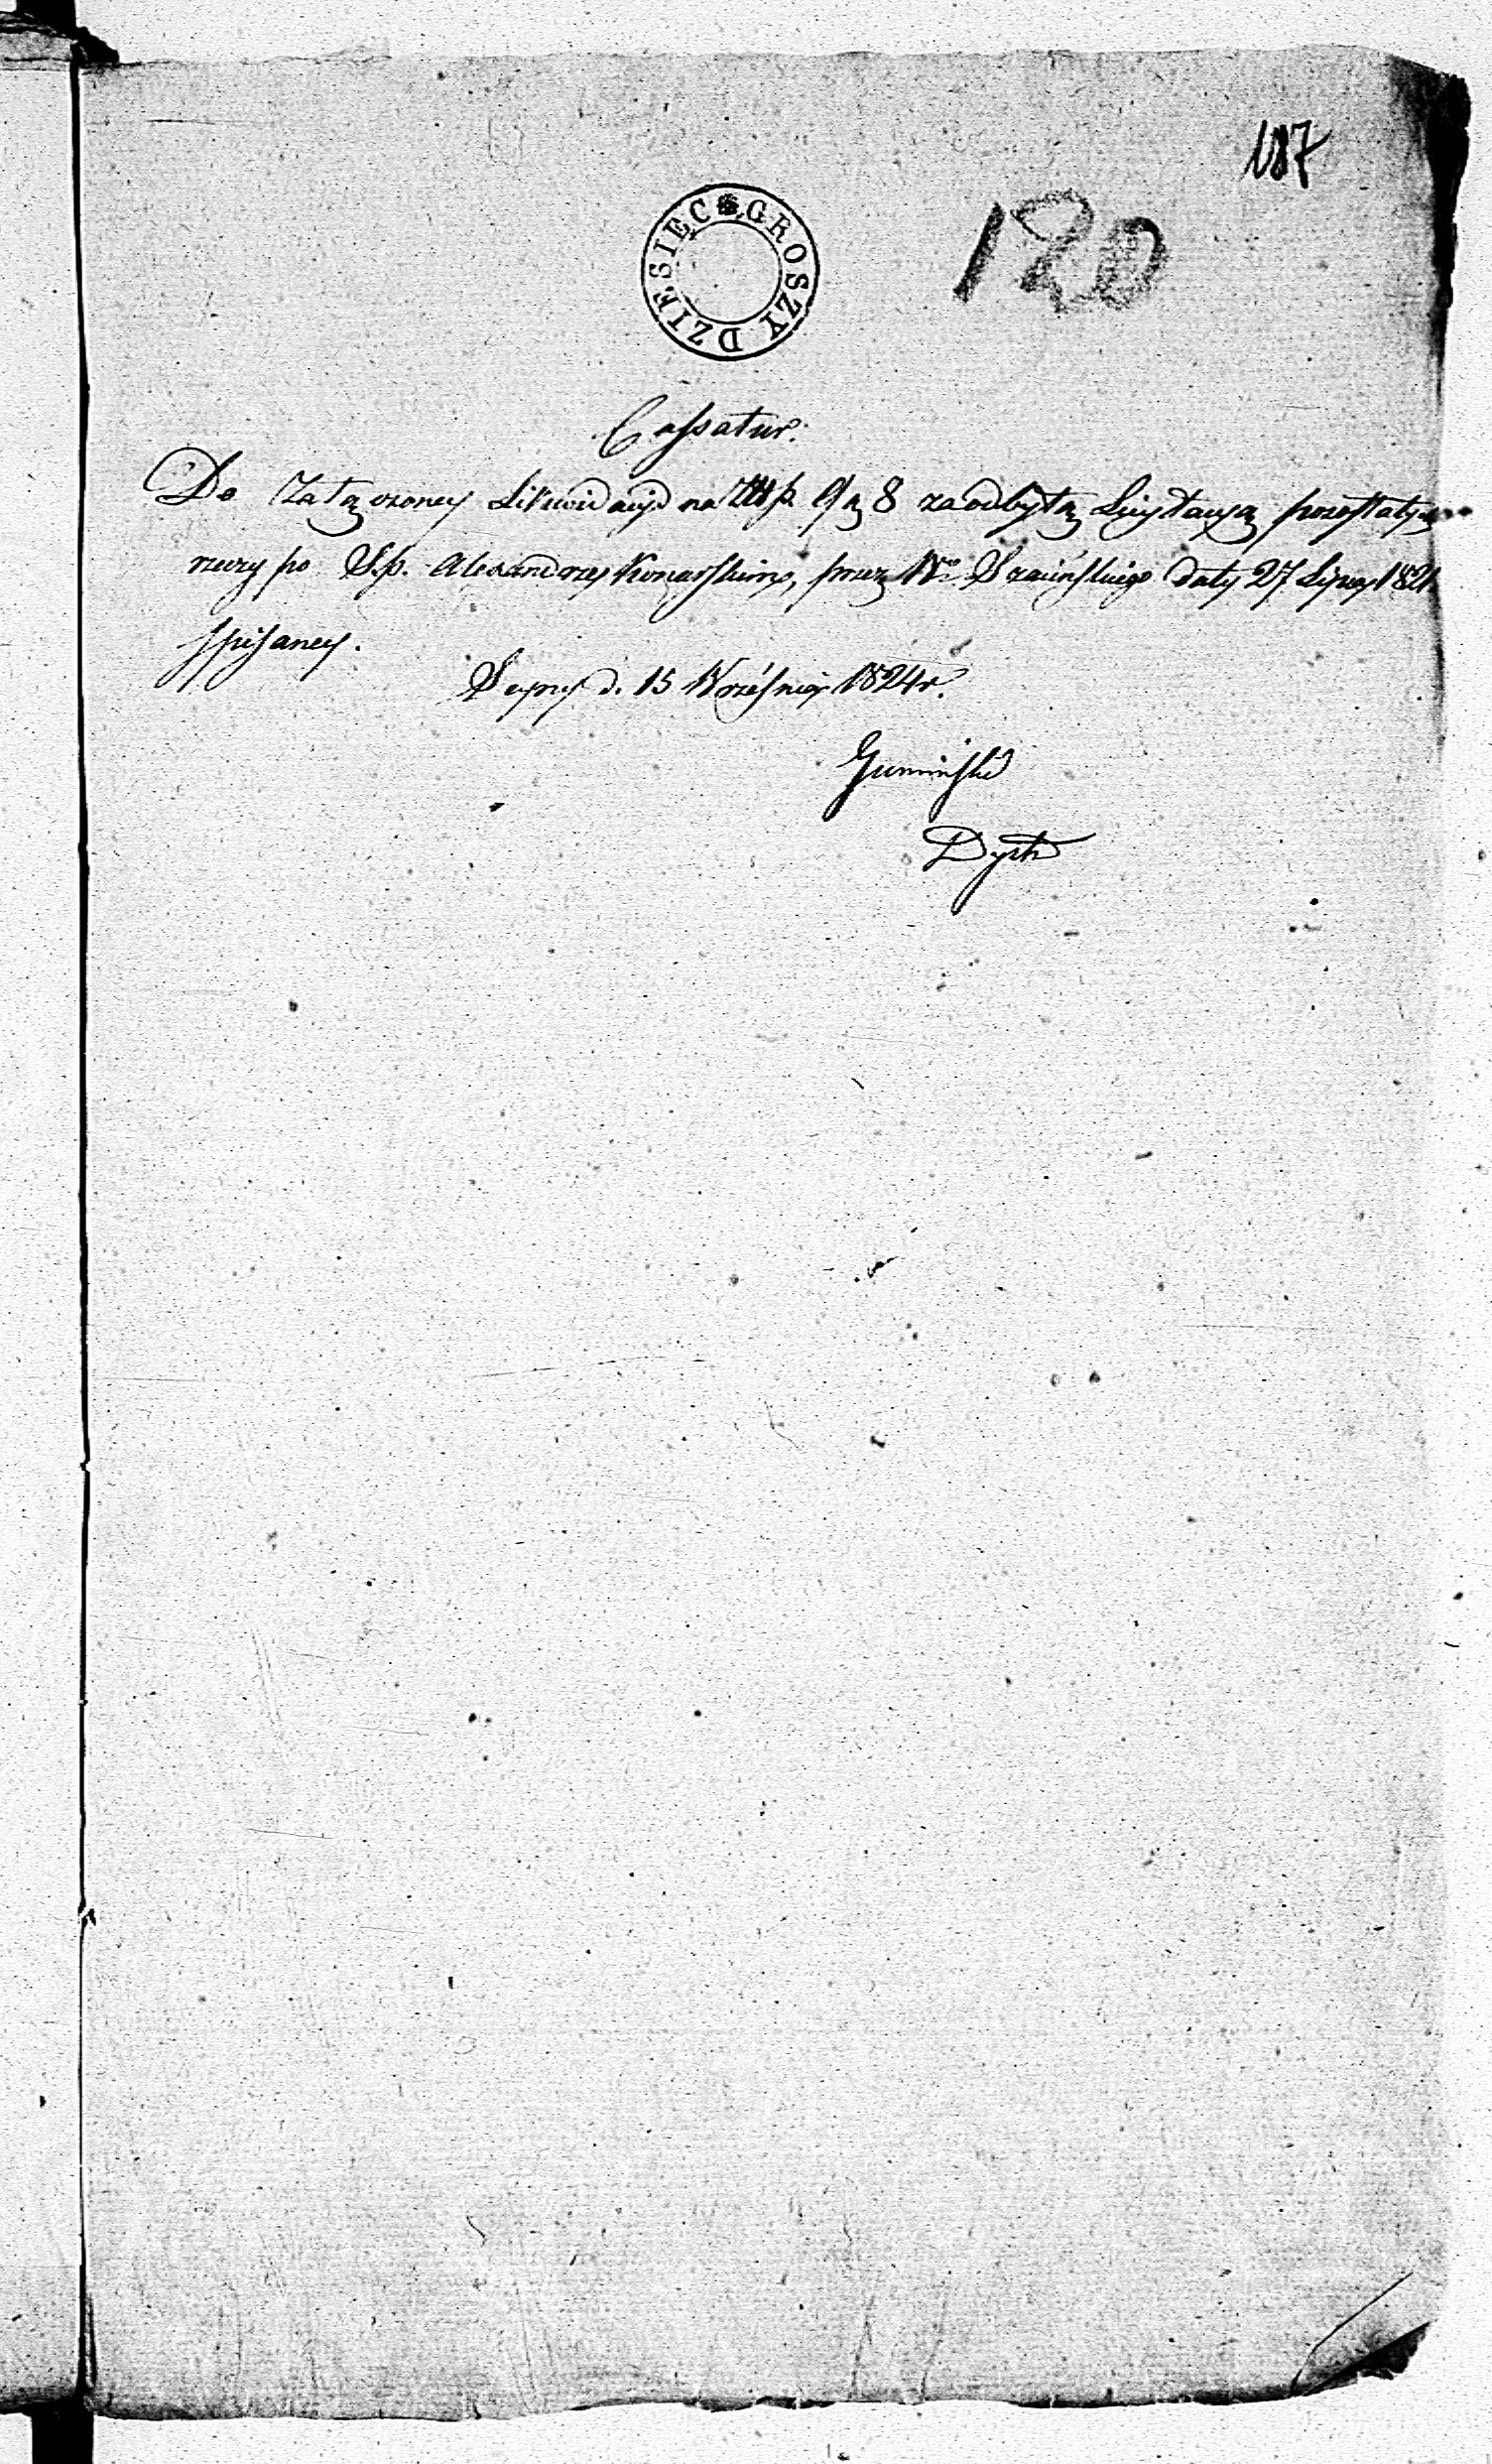 187
120
GROSZY DZIESIĘC
Cassatur.
Do Załączoney Likwidacyi na Złłp. 9 g 8 za odbytą Licytacyą pozostałych
rzeczy po S.p. Alexandrze Konarskim, przez Wo Szaińskiego daty 27 Lipca 1821
spisaney.
Seyny d. 15 Września 1824 r.
Gumiński